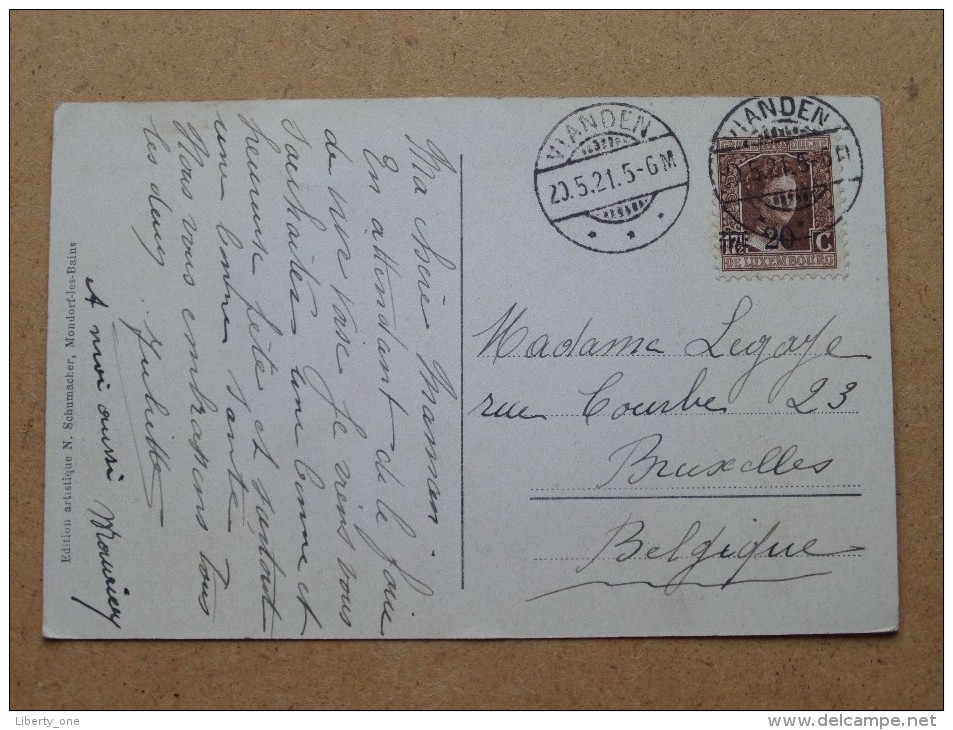 Ma chère Maman.
En attendant de le faire
de vive voix je viens vous
souhaiter une bonne et
heureuse fête et surtout
une bonne santé.
Nous vous embrassons tous
les deux Juliette
A moi aussi
Edition artistique N. Schumacher, Mondorf-les-Bains
VIANDEN
20.5.21.5-6M
VIANDEN
.5.21.5-6
17½
20 C
DE LUXEMBOURG
Madame Legaye
rue Courbe 23
Bruxelles
Belgique
Liberty_one
www.delcampe.net